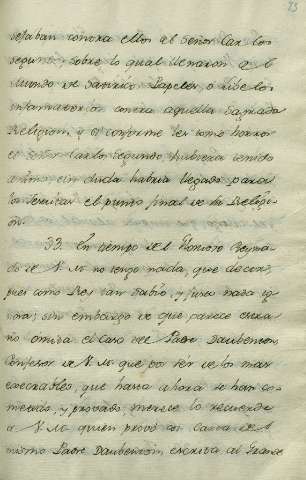 75
sejaban contra ellos al Señor Carlos
segundo, sobre lo qual llenaron a el
Mundo de Satirico Papeles, o Libelos
infamatorios contra aquella Sagrada
Religion, y
el Señor Carlos Segundo hubiera tenido
sin duda habria llegado para
los Jesuitas el punto final de su Religi-
on.
33. En tiempo de el Glorioso Reyna-
do de V. M. no tengo nada, que decir,
pues como Rey tan Sabio, y justo nada ig-
nora; sin embargo de que parece
no omita el caso del Padre Daubenton
Confesor de V. M. que por ser de los mas
execrables, que hasta ahora se han co-
metido, y probado, merece lo recuerde
a V. M. quien provó con carta de el
mismo Padre Daubenton, escrita al Grande